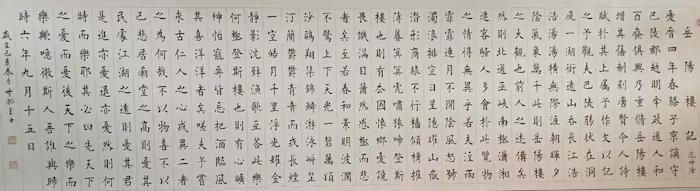 岳陽樓記 范仲淹
慶曆四年春滕子京謫守
巴陵郡越明年政通人和
百廢俱興乃重修岳陽樓
增其舊制刻唐賢今人詩
賦於其上屬予作文以記
之予觀夫巴陵勝狀在洞
庭一湖銜遠山吞長江浩
浩湯湯橫無際涯朝暉夕
陰氣象萬千此則岳陽樓
之大觀也前人之述備矣
然則北通巫峽南極瀟湘
遷客騷人多會於此覽物
之情得無異乎若夫淫雨
霏霏連月不開陰風怒號
濁浪排空日星隱曜山嶽
潛形商旅不行檣傾楫摧
薄暮冥冥虎嘯猿啼登斯
樓也則有去國懷鄉憂讒
畏譏滿目蕭然感極而悲
者矣至若春和景明波瀾
不驚上下天光一碧萬頃
沙鷗翔集錦鱗游泳岸芷
汀蘭鬱鬱青青而或長煙
一空皓月千里浮光耀金
靜影沈璧漁歌互答此樂
何極登斯樓也則有心曠
神怡寵辱皆忘把酒臨風
其喜洋洋者矣嗟夫予嘗
求古仁人之心或異二者
之為何哉不以物喜不以
己悲居廟堂之高則憂其
民處江湖之遠則憂其君
是進亦憂退亦憂然則何
時而樂耶其必曰先天下
之憂而憂後天下之樂而
樂歟噫微斯人吾誰與歸
時六年九月十五日
歲在己亥春月